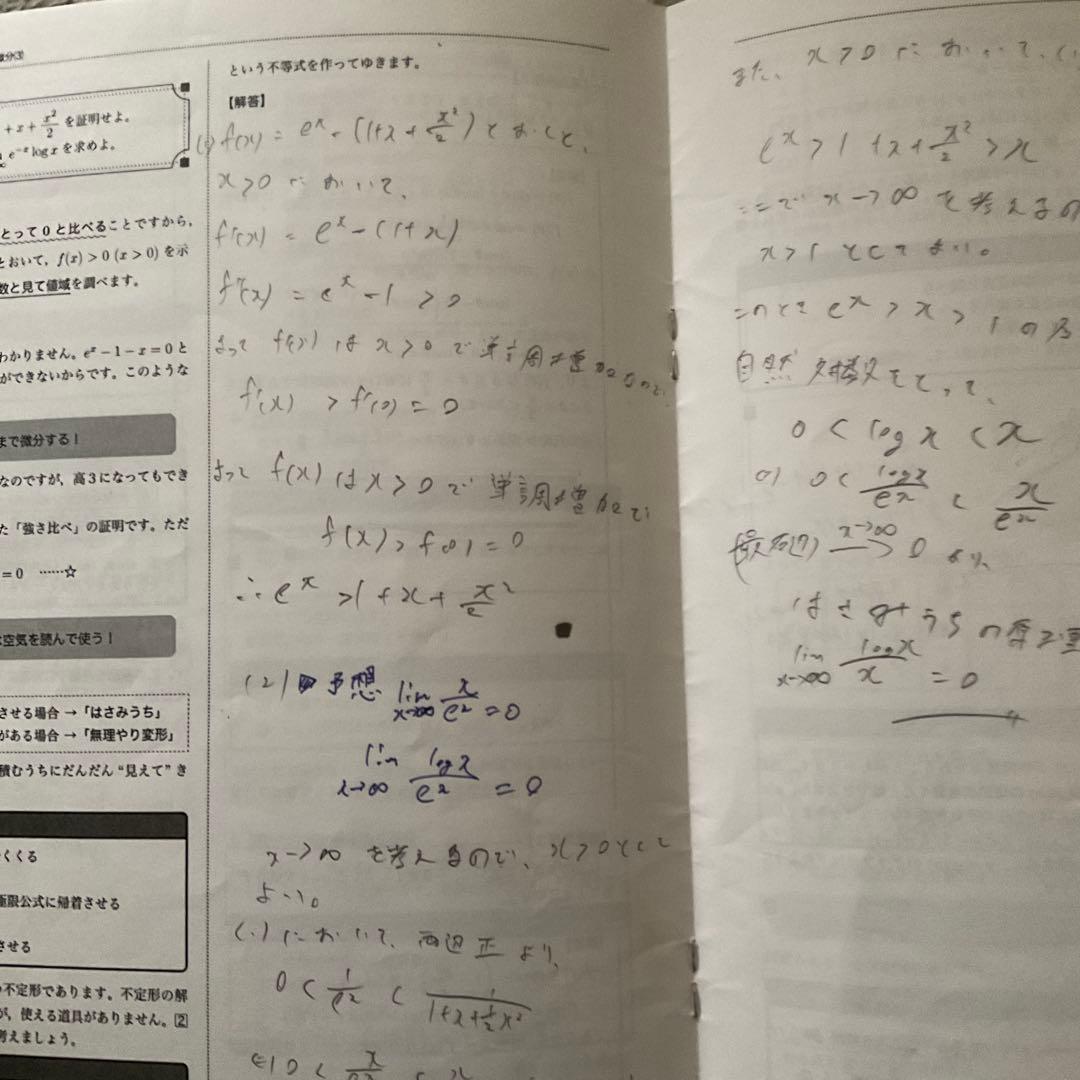 微分③
+ x + x²/2 を証明せよ。
e⁻ˣ log x を求めよ。
とって 0 と比べることですから,
とおいて, f(x) > 0 (x > 0) を示
数と見て値域を調べます。
わかりません。eˣ − 1 − x = 0 と
ができないからです。このような
まで微分する!
なのですが, 高3になってもでき
た「強さ比べ」の証明です。ただ
= 0 ……☆
空気を読んで使う!
させる場合 → 「はさみうち」
がある場合 → 「無理やり変形」
積むうちにだんだん "見えて" き
くくる
極限公式に帰着させる
させる
不定形であります。不定形の解
が, 使える道具がありません。②
考えましょう。
という不等式を作ってゆきます。
【解答】
(1) f(x) = eˣ − (1+x+x²/2) とおくと、
x>0 において、
f'(x) = eˣ − (1+x)
f''(x) = eˣ − 1 > 0
よって f'(x) は x>0 で 単調増加なので、
f'(x) > f'(0) = 0
よって f(x) は x>0 で 単調増加で
f(x) > f(0) = 0
∴ eˣ > 1 + x + x²/2
(2) 予想 lim x→∞ x/eˣ = 0
lim x→∞ log x/eˣ = 0
x→∞ を考えるので、x>0 として
よい。
(1) において、両辺正より、
0 < 1/eˣ < 1/(1+x+½x²)
0 < x
また、x>0 において、(1
eˣ > 1 + x + x²/2 > x
ここで x→∞ を考えるの
x>1 としてよい。
このとき eˣ > x > 1 の
自然対数をとって、
0 < log x < x
0 < log x/eˣ < x/eˣ
(最右辺) x→∞ → 0 より、
はさみうちの原理
lim x→∞ log x/x = 0